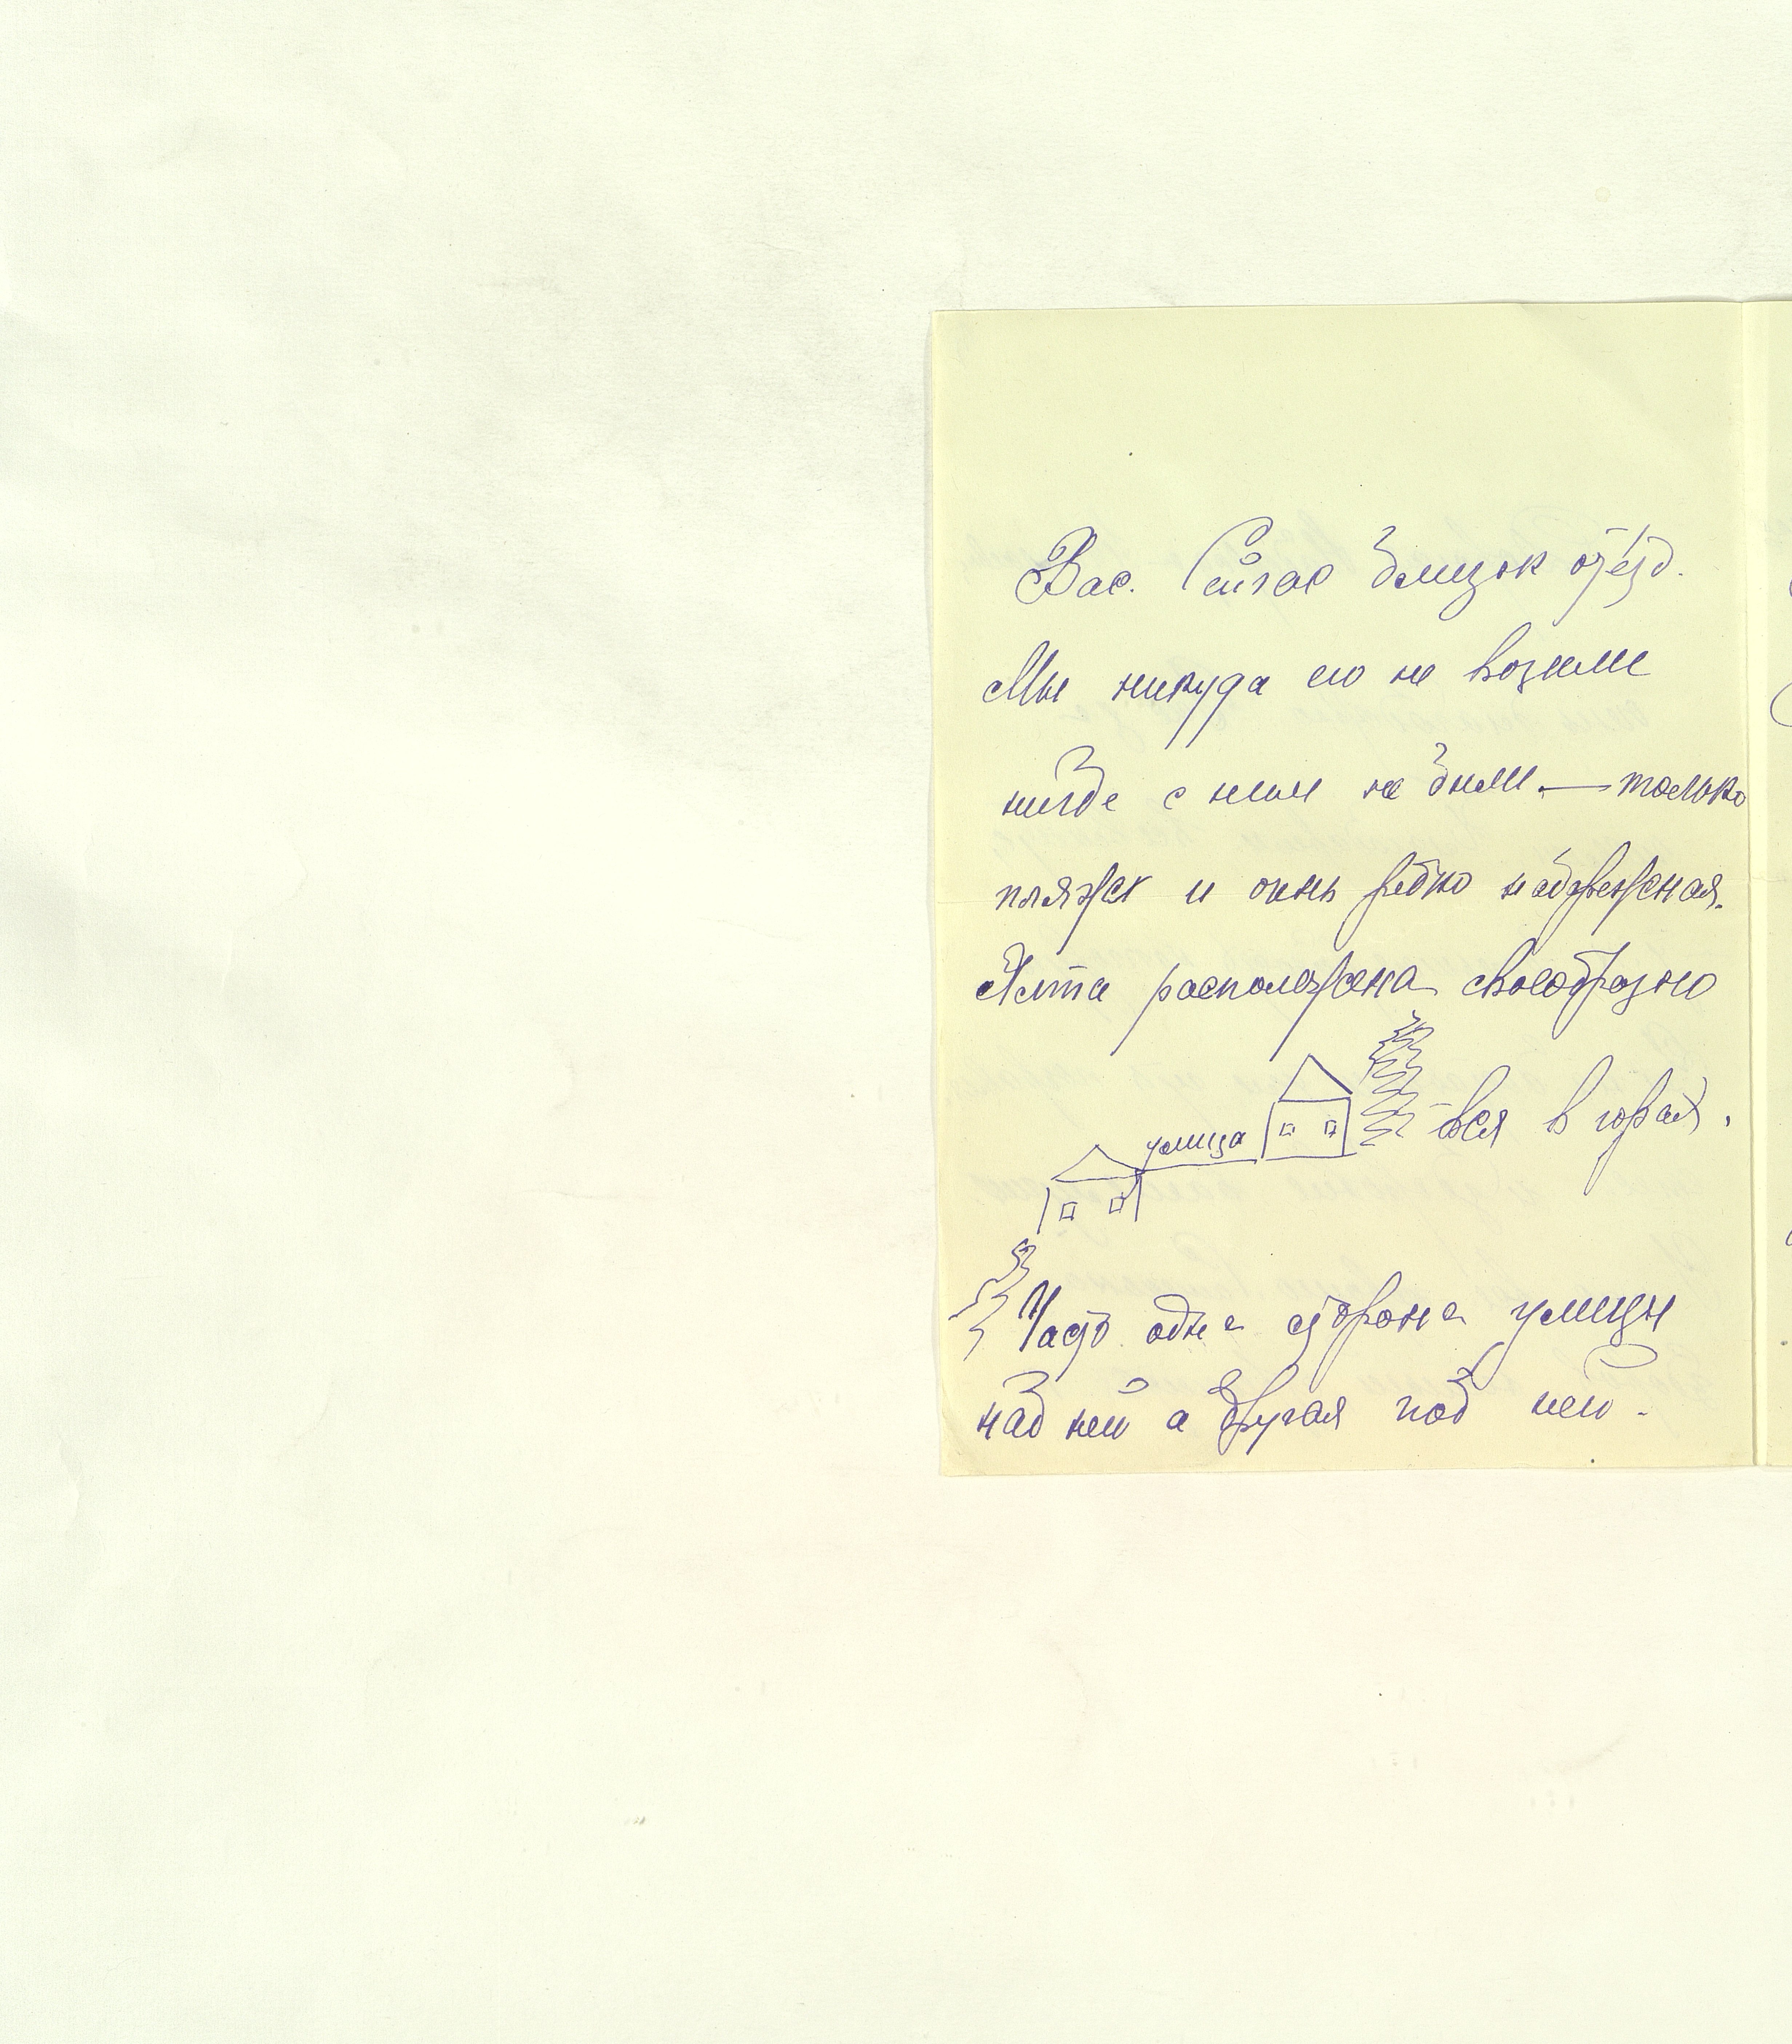 Вас. Сейчас близок отъезд.
Мы никуда его не возили
нигде с ним не были. — только
пляж и очень редко набережная.
Ялта расположена своеобразно
улица
вся в горах.
Часто одна сторона улицы
над ней а другая под ней.